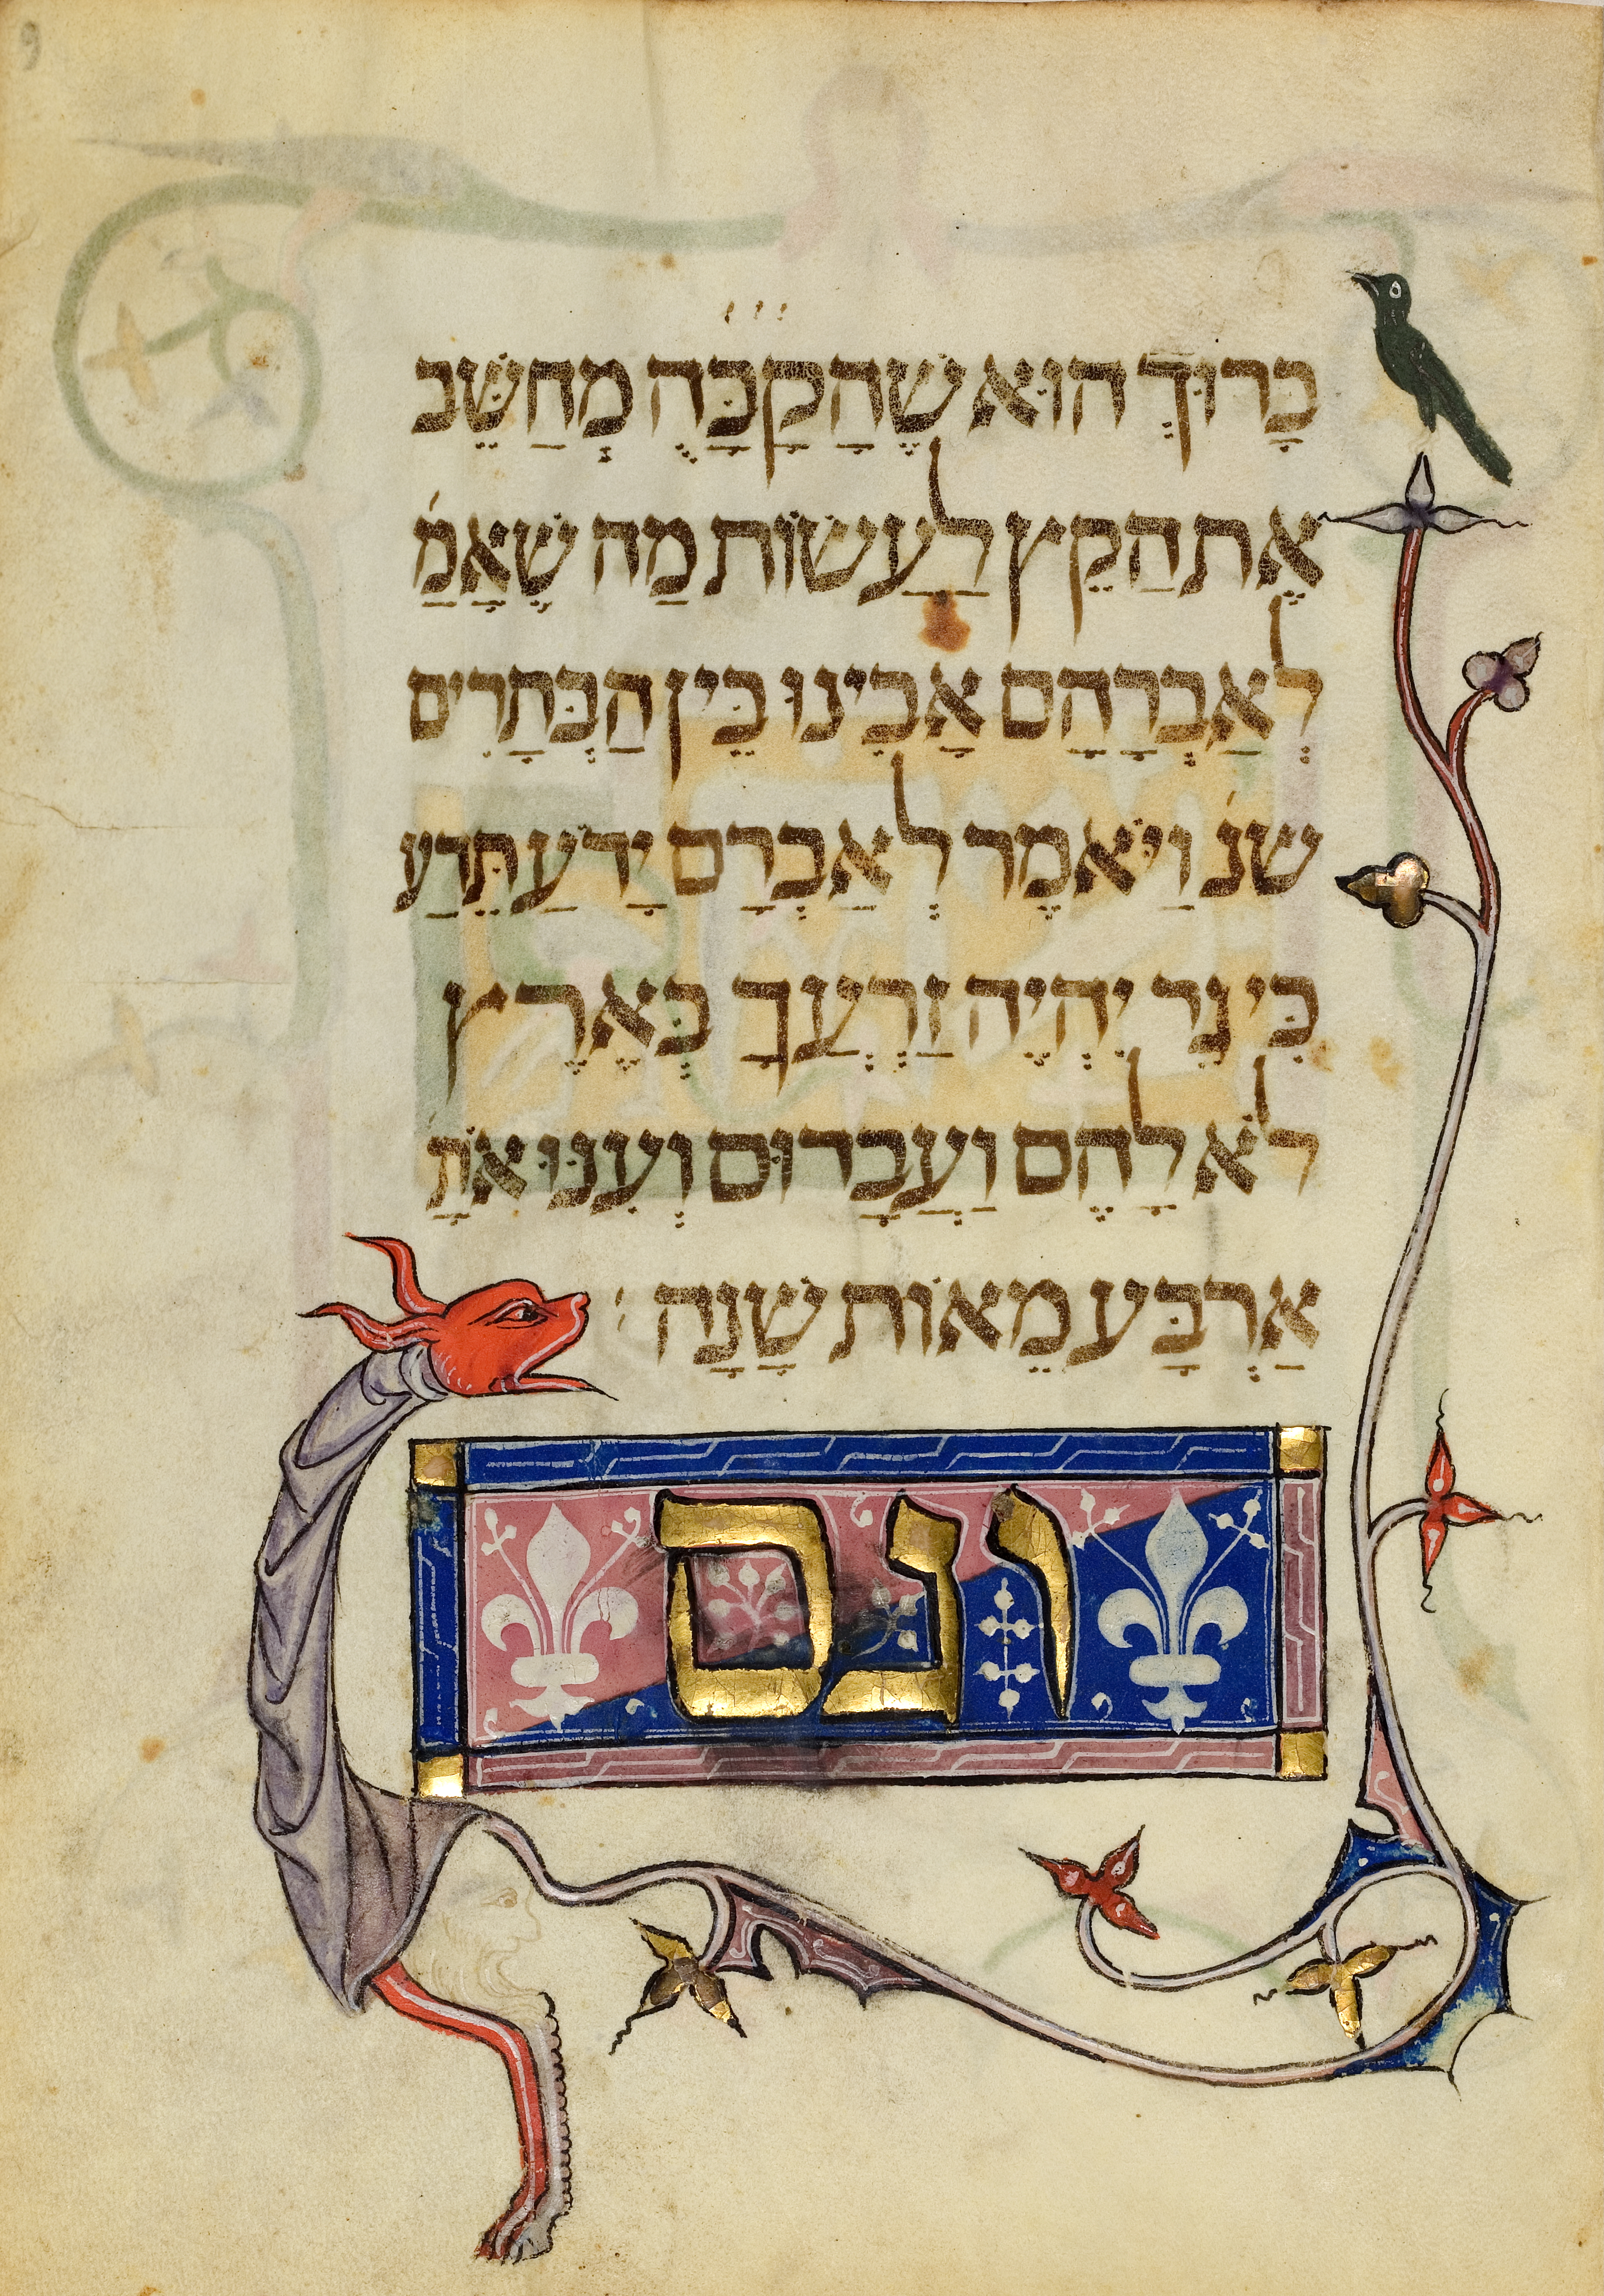 9
בָּרוּךְ הוּא שֶׁהַקָבָּהֻ מְחַשֵּׁב
אֶת הַקֵץ לַעֲשׂוֹת מַה שֶׁאָמַ֗
לְאַבְרָהָם אָבִינוּ בֵּין הַבְּתָרִים
שנ֗ וַיֹּאמֶר לְאַבְרָם יָדֹעַ תֵּדַע
כִּי גֵר יִהְיֶה זַרְעֲךָ בְּאֶרֶץ
לֹא לָהֶם וַעֲבָדוּם וְעִנּוּ אֹתָ֗
אַרְבַּע מֵאוֹת שָׁנָה׃
וגם